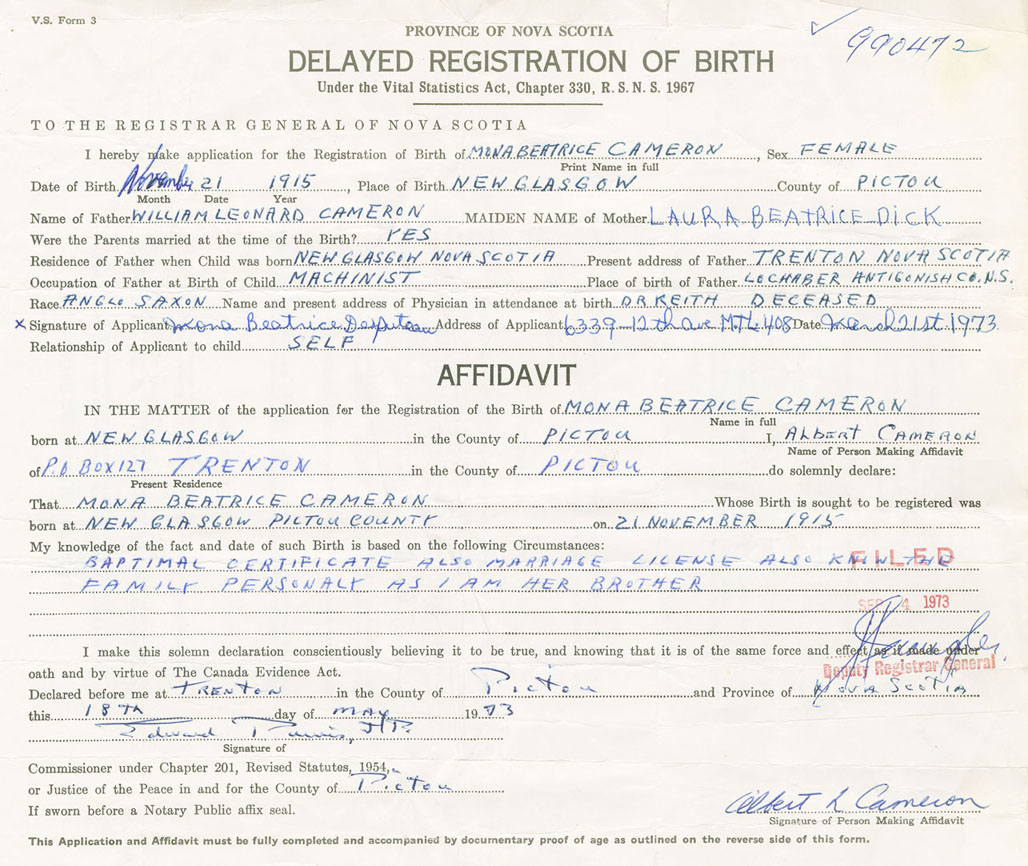 V.S. Form 3
990472
PROVINCE OF NOVA SCOTIA
DELAYED REGISTRATION OF BIRTH
Under the Vital Statistics Act, Chapter 330, R.S.N.S. 1967
TO THE REGISTRAR GENERAL OF NOVA SCOTIA
I hereby make application for the Registration of Birth of MONA BEATRICE CAMERON, Sex FEMALE
Print Name in full
Date of Birth November 21 1915, Place of Birth NEW GLASGOW County of PICTOU
Month Date Year
Name of Father WILLIAM LEONARD CAMERON MAIDEN NAME of Mother LAURA BEATRICE DICK
Were the Parents married at the time of the Birth? YES
Residence of Father when Child was born NEW GLASGOW NOVA SCOTIA Present address of Father TRENTON NOVA SCOTIA
Occupation of Father at Birth of Child MACHINIST Place of birth of Father LOCHABER ANTIGONISH CO. N.S.
Race ANGLO SAXON Name and present address of Physician in attendance at birth DR KEITH DECEASED
X Signature of Applicant Mona Beatrice Address of Applicant 6339 12th ave MTL 408 Date March 21st 1973
Relationship of Applicant to child SELF
AFFIDAVIT
IN THE MATTER of the application for the Registration of the Birth of MONA BEATRICE CAMERON
Name in full
born at NEW GLASGOW in the County of PICTOU I, ALBERT CAMERON
Name of Person Making Affidavit
of P.O BOX 127 TRENTON in the County of PICTOU do solemnly declare:
Present Residence
That MONA BEATRICE CAMERON Whose Birth is sought to be registered was
born at NEW GLASGOW PICTOU COUNTY on 21 NOVEMBER 1915
My knowledge of the fact and date of such Birth is based on the following Circumstances:
BAPTIMAL CERTIFICATE ALSO MARRIAGE LICENSE ALSO KNOW THE
FILED
FAMILY PERSONALY AS I AM HER BROTHER
1973
I make this solemn declaration conscientiously believing it to be true, and knowing that it is of the same force and effect as if made under
Deputy Registrar General
oath and by virtue of The Canada Evidence Act.
Declared before me at TRENTON in the County of Pictou and Province of NOVA SCOTIA
this 18TH day of MAY 1973
Edward J.P.
Signature of
Commissioner under Chapter 201, Revised Statutes, 1954,
or Justice of the Peace in and for the County of Pictou
If sworn before a Notary Public affix seal.
Albert L Cameron
Signature of Person Making Affidavit
This Application and Affidavit must be fully completed and accompanied by documentary proof of age as outlined on the reverse side of this form.